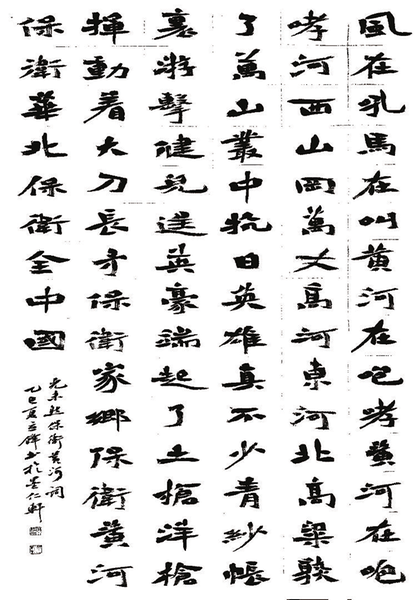 風在吼馬在叫黃河在咆哮黃河在咆
哮河西山岡萬丈高河東河北高粱熟
了萬山叢中抗日英雄真不少青紗帳
裏游擊健兒逞英豪端起了土槍洋槍
揮動着大刀長矛保衛家鄉保衛黃河
保衛華北保衛全中國
光未然保衛黃河詞
乙巳夏立鋒书於仁軒